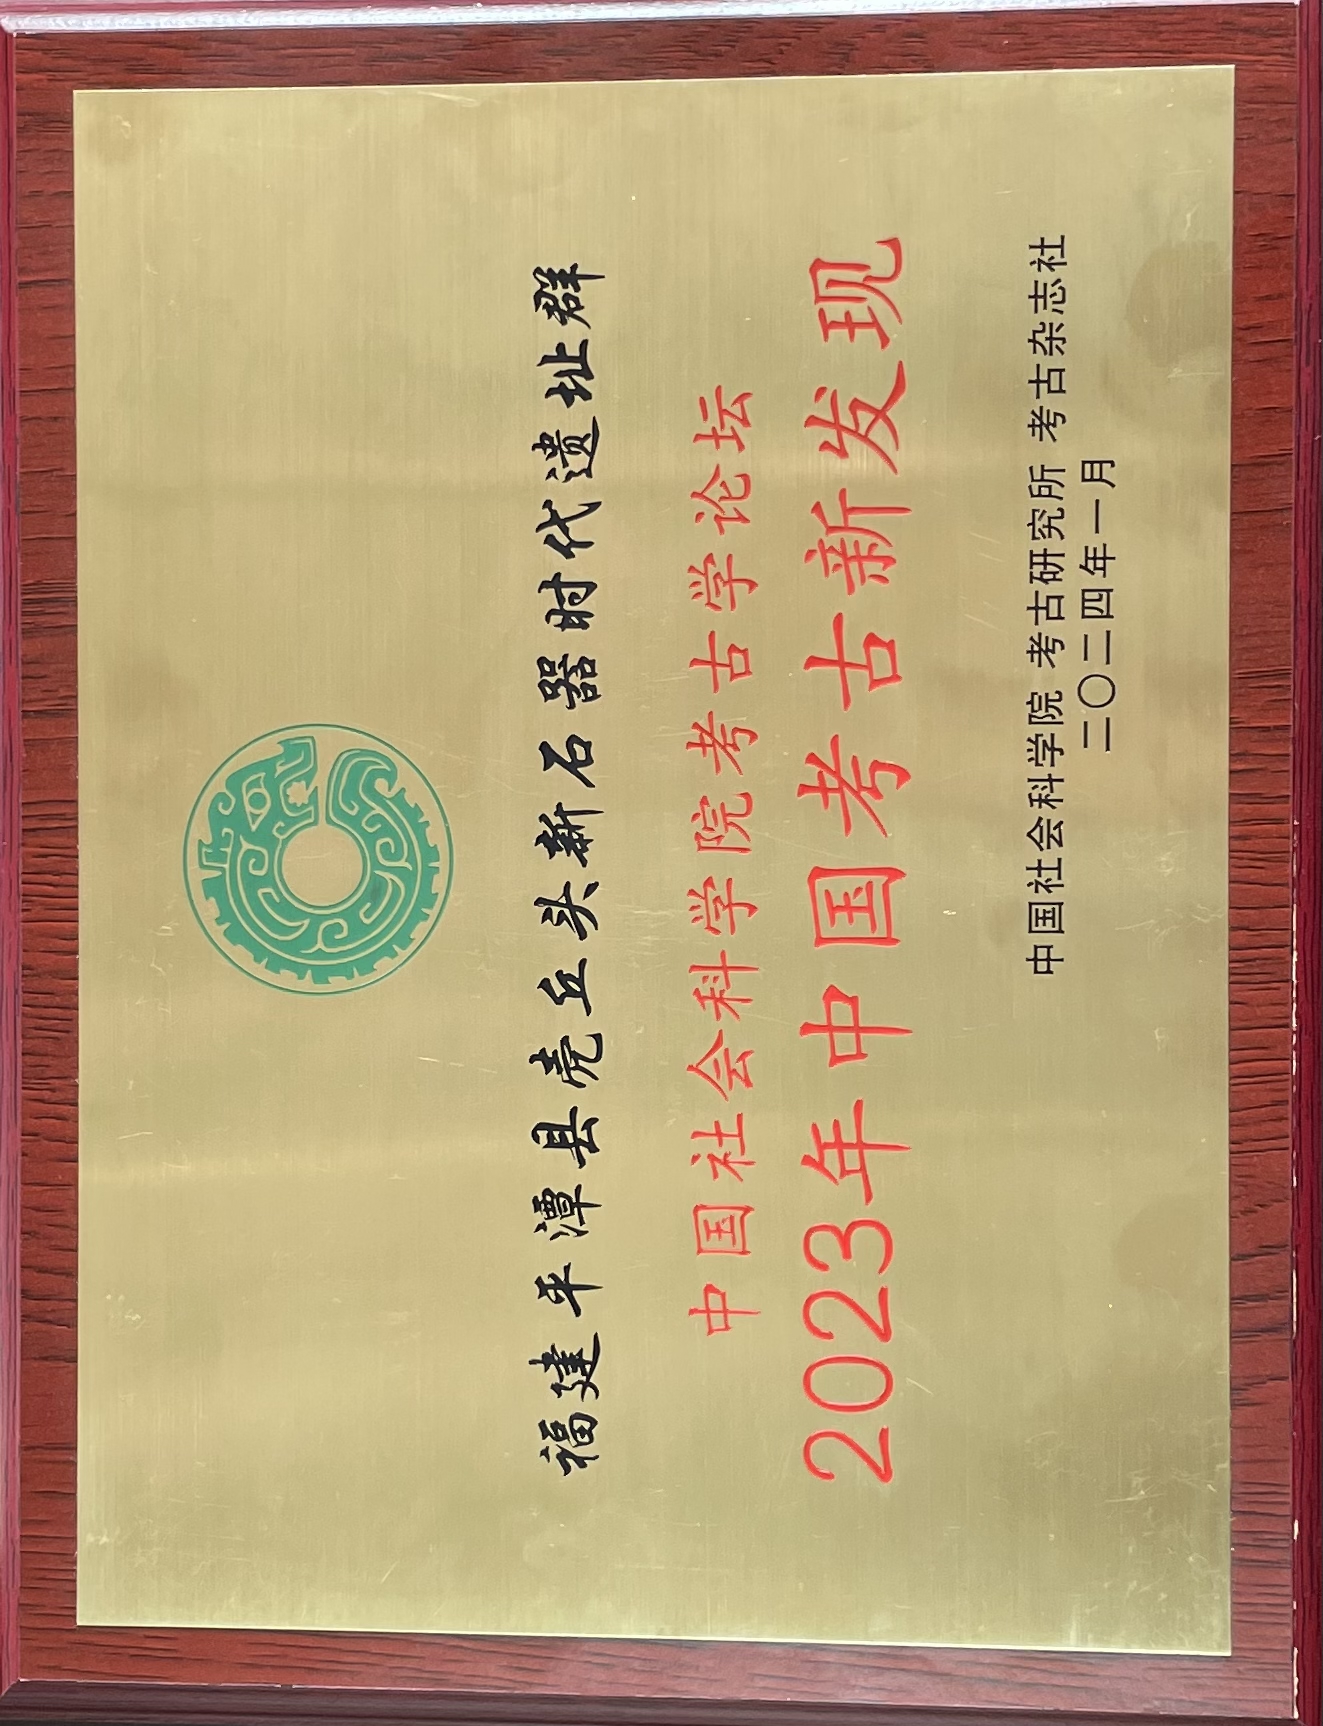 福建平潭县壳丘头新石器时代遗址群
中国社会科学院考古学论坛
2023年中国考古新发现
中国社会科学院 考古研究所 考古杂志社
二〇二四年一月